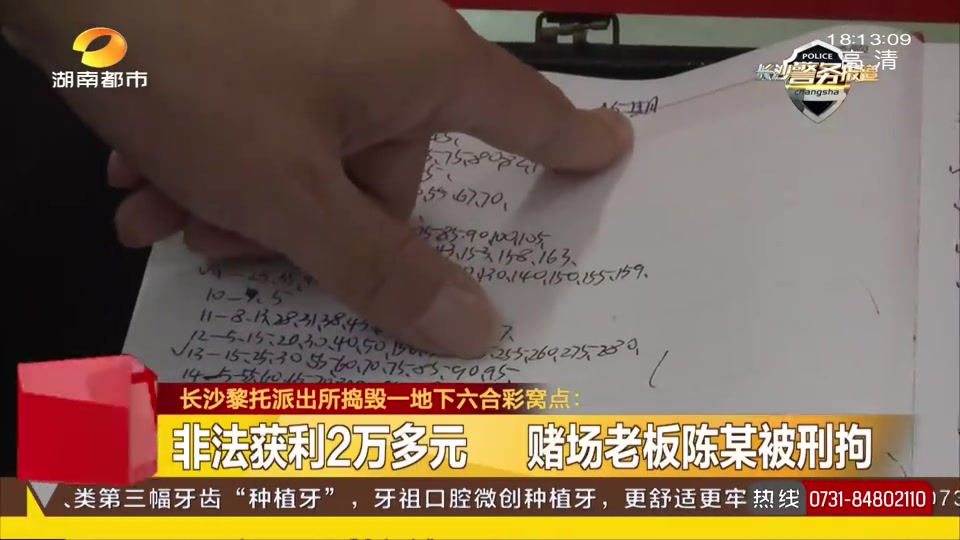 湖南都市
18:13:09
高清
POLICE
长沙警务报道
changsha
55,67,70、
85,90,100,105、
153,158,163、
130,140,150,155,159、
10-9、5
11-8,13,28,31,38,43
12-5,15,20,30,40,50
255,260,275,2830、
√13-15,25,30,55,60,70,75,85,90,95、
长沙黎托派出所捣毁一地下六合彩窝点：
非法获利2万多元 赌场老板陈某被刑拘
、类第三幅牙齿“种植牙”，牙祖口腔微创种植牙，更舒适更牢
热线 0731-84802110